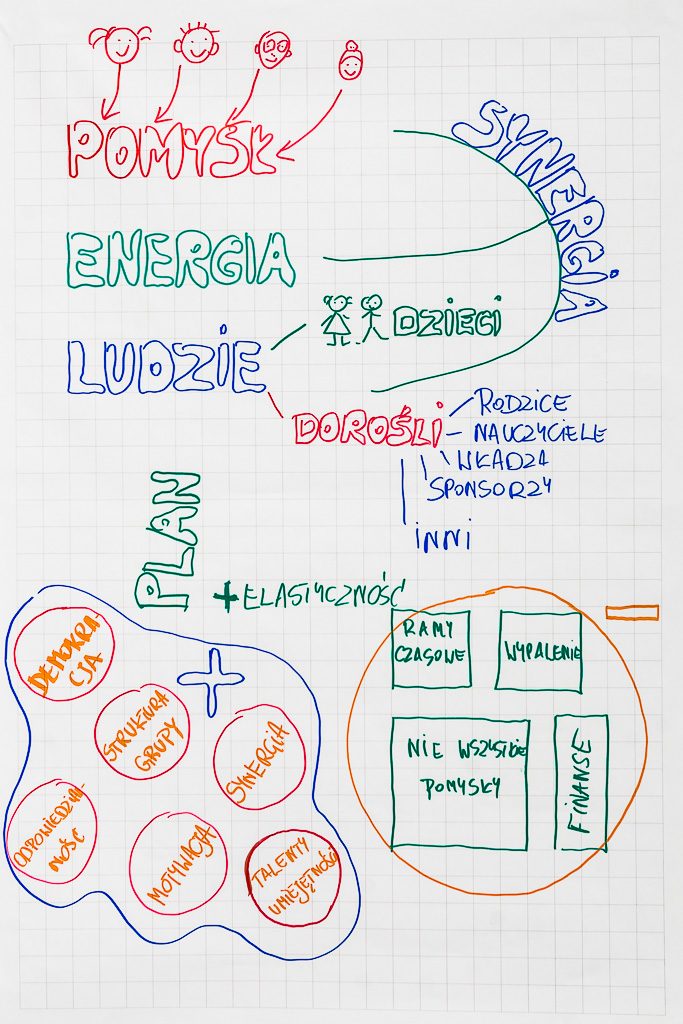 POMYSŁ
SYNERGIA
ENERGIA
LUDZIE
DZIECI
DOROŚLI
RODZICE
NAUCZYCIELE
WŁADZA
SPONSORZY
INNI
PLAN
+ ELASTYCZNOŚĆ
DEMOKRA-
CJA
STRUKTURA
GRUPY
SYNERGIA
ODPOWIEDZIAL
NOŚĆ
MOTYWACJA
TALENTY
UMIEJĘTNOŚCI
RAMY
CZASOWE
WYPALENIE
NIE WSZYSTKIE
POMYSŁY
FINANSE